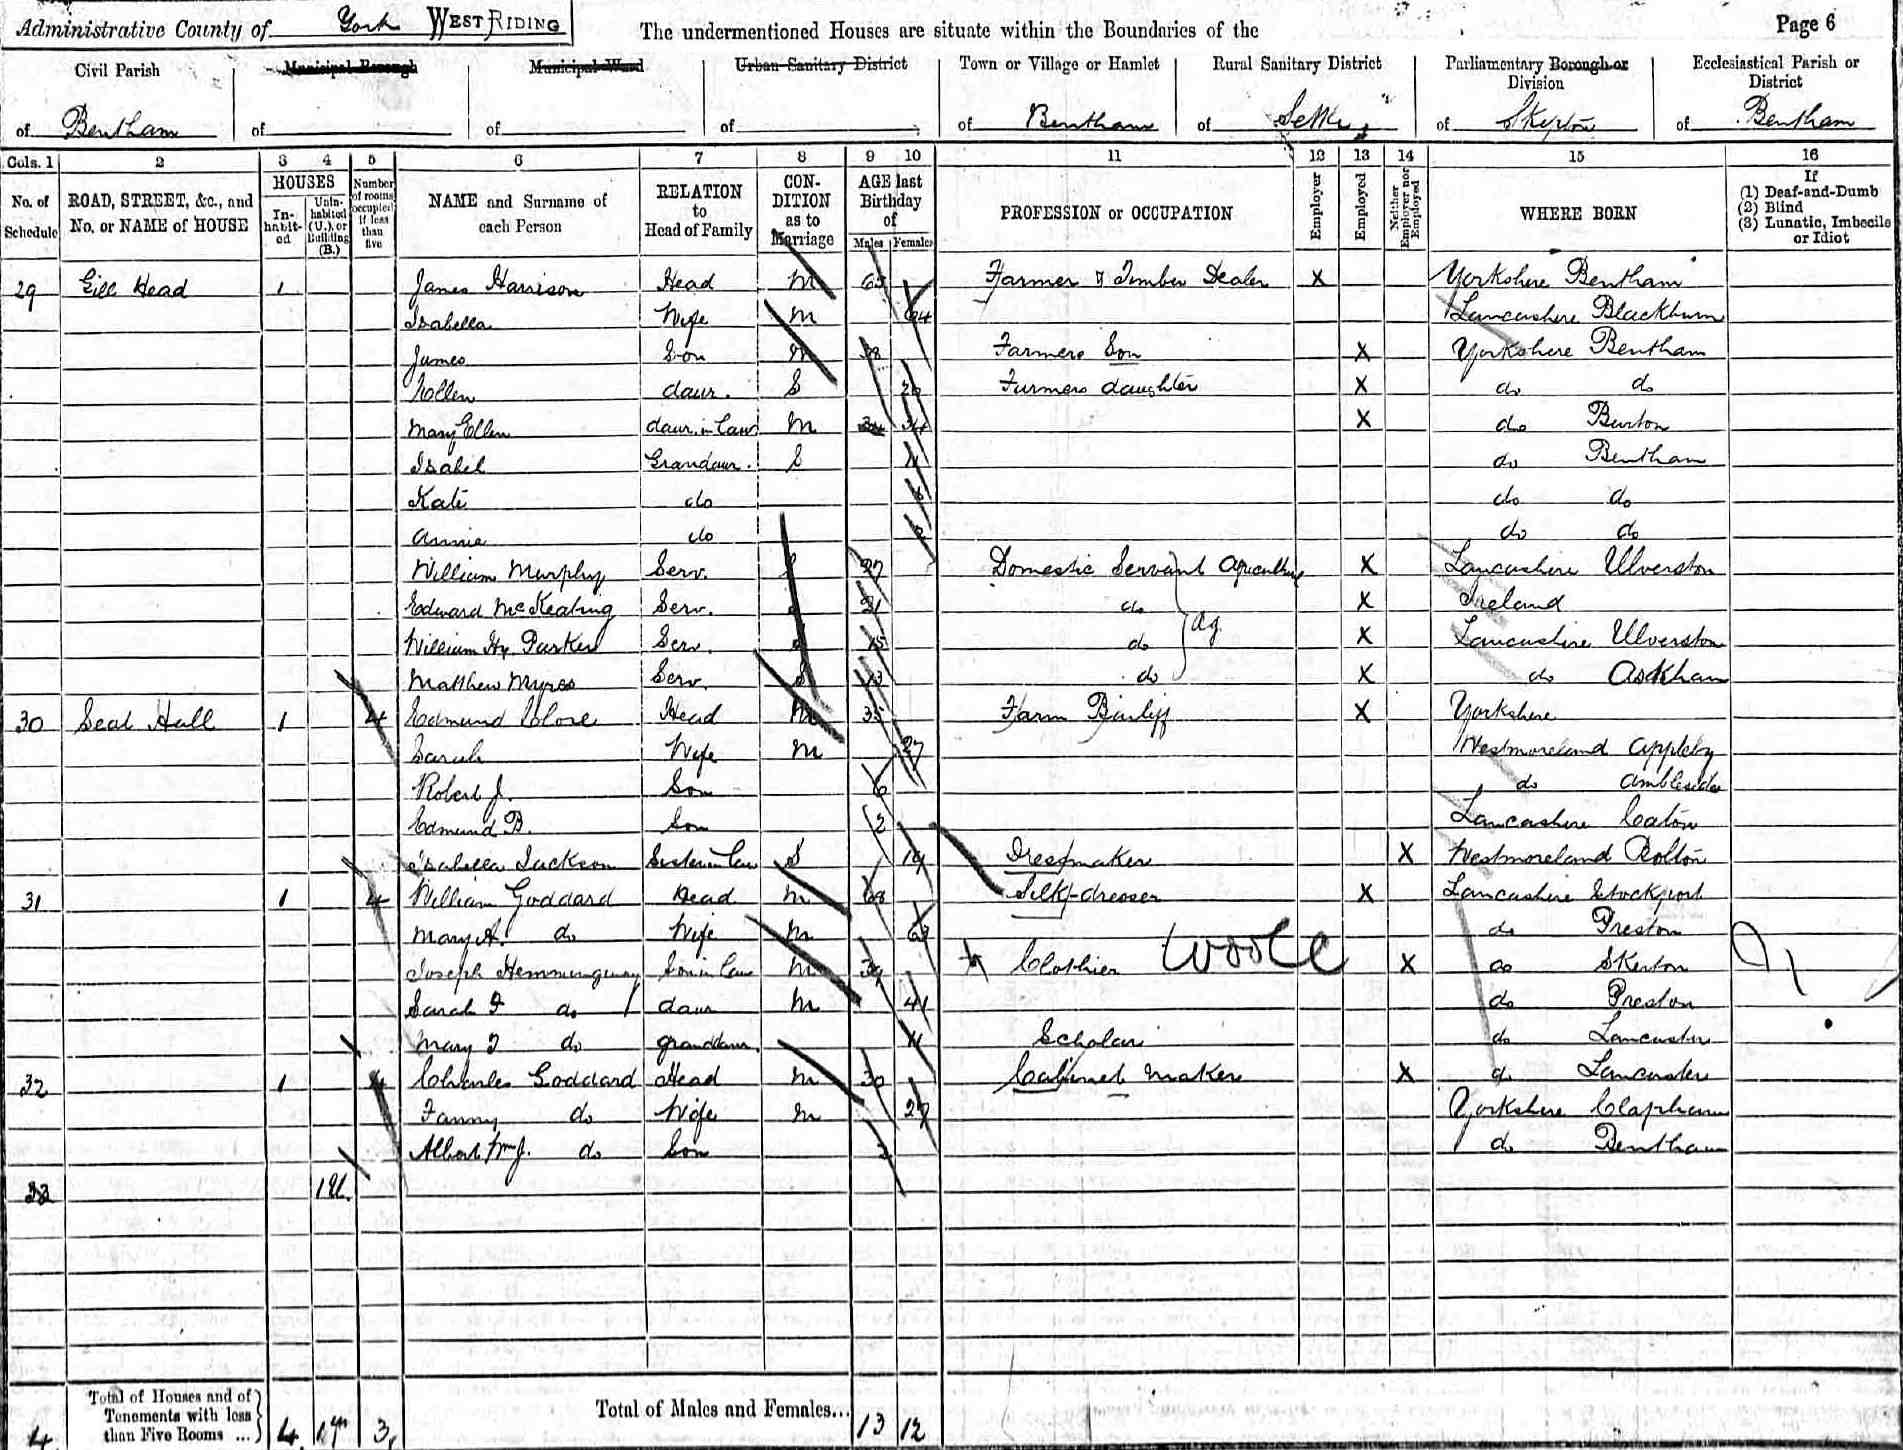 Administrative County of York WEST RIDING The undermentioned Houses are situate within the Boundaries of the Page 6
Civil Parish Municipal Borough Municipal Ward Urban Sanitary District Town or Village or Hamlet Rural Sanitary District Parliamentary Borough or Division Ecclesiastical Parish or District
of Bentham of of of of Bentham of Settle of Skipton of Bentham
Cols. 1 2 3 4 5 6 7 8 9 10 11 12 13 14 15 16
No. of Schedule ROAD, STREET, &c., and No. or NAME of HOUSE HOUSES Inhabited Uninhabited (U.) or Building (B.) Number of rooms occupied if less than five NAME and Surname of each Person RELATION to Head of Family CONDITION as to Marriage AGE last Birthday of Males Females PROFESSION or OCCUPATION Employer Employed Neither Employer nor Employed WHERE BORN If (1) Deaf-and-Dumb (2) Blind (3) Lunatic, Imbecile or Idiot
29 Gill Head 1 James Harrison Head M Farmer & Timber Dealer X Yorkshire Bentham
Isabella Wife M 64 Lancashire Blackburn
James Son M 38 Farmers Son X Yorkshire Bentham
daur. S Farmers daughter X do do
Mary Ellen daur. in Law M 34 34 X do Burton
Isabel Grandaur. S 11 do Bentham
Kate do do do
Annie do do do
William Murphy Serv. S 27 Domestic Servant Agriculture X Lancashire Ulverston
Edward McKeating Serv. S 21 do X Ireland
William Hy. Parker Serv. S 15 do Ag. X Lancashire Ulverston
Matthew Myres Serv. S 13 do X do Askham
30 Seat Hall 1 4 Edmund Close Head M 35 Farm Bailiff X Yorkshire
Sarah Wife M 27 Westmoreland Appleby
Robert J. Son 6 do Ambleside
Edmund B. Son 2 Lancashire Caton
Isabella Jackson Sister in law S 19 Dressmaker X Westmoreland Bolton
31 1 4 William Goddard Head M 68 Silk-dresser X Lancashire Stockport
Mary A. do Wife M do Preston
Joseph Hemmingway Son in law M 39 Clothier Wool X do Skerton
Sarah do daur M 41 do Preston
Mary do granddaur. 11 Scholar do Lancaster
32 1 4 Charles Goddard Head M 30 Cabinet Maker X do Lancaster
Fanny do Wife M 27 Yorkshire Clapham
Albert Wm J. do Son 2 do Bentham
33 1U.
4 Total of Houses and of Tenements with less than Five Rooms ... 4 1 3 Total of Males and Females... 13 12